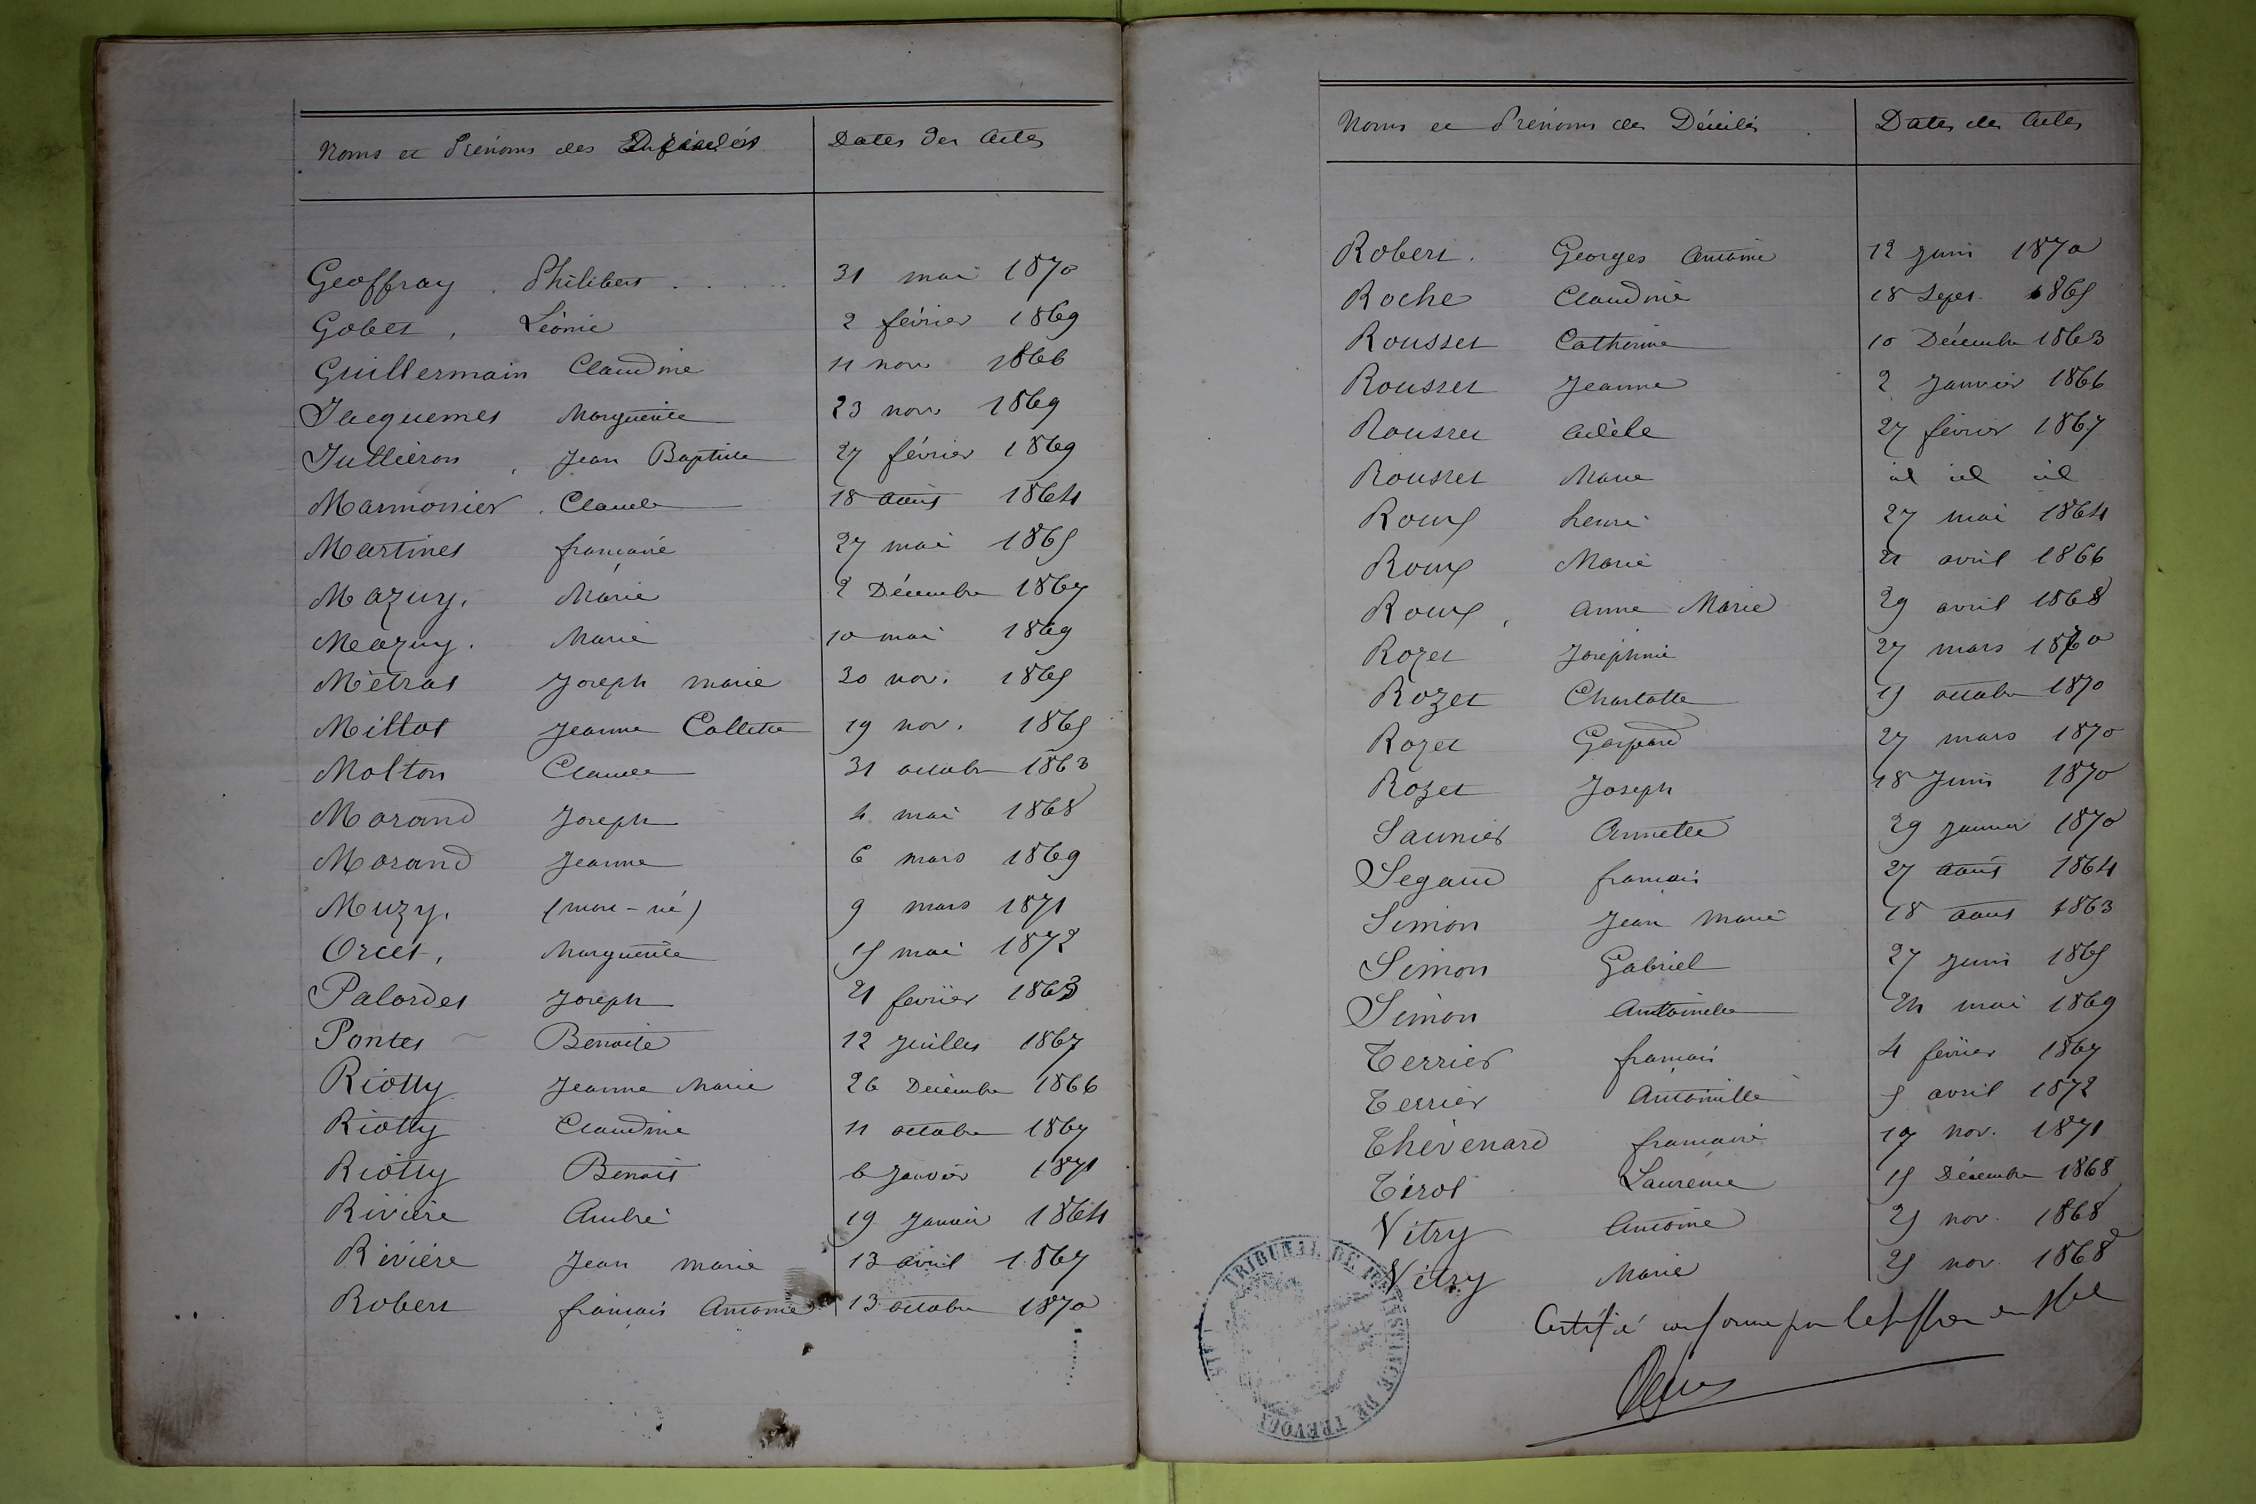 Noms et Prénoms des Décédés Dates des Actes
Geoffray . Philibert . . . . . 31 mai 1870
Gobet , Léonie 2 février 1869
Guillermain Claudine 11 nov 1866
Jacquemet Marguerite 23 nov 1869
Jullieron , Jean Baptiste 27 février 1869
Marmonier . Claude 18 août 1864
Martinet françoise 27 mai 1865
Mazuy. Marie 2 Décembre 1867
Mazuy. Marie 10 mai 1869
Métrat Joseph marie 30 nov. 1865
Millot Jeanne Collette 19 nov. 1865
Molton Claude 31 octobre 1863
Morand Joseph 4 mai 1868
Morand Jeanne 6 mars 1869
Muzy, (mort-né) 9 mars 1871
Orcet, Marguerite 15 mai 1872
Palordet Joseph 21 février 1863
Pontet Benoite 12 juillet 1867
Riotty Jeanne Marie 26 Décembre 1866
Riotty Claudine 11 octobre 1867
Riotty Benoit 6 Janvier 1871
Rivière André 19 Janvier 1864
Rivière Jean marie 13 avril 1867
Robert françois Antoine 13 octobre 1870
Noms et Prénoms des Décédés . Dates des Actes
Robert. Georges Antoine 12 Juin 1870
Roche Claudine 18 Sept. 1865
Rousset Catherine 10 Décembre 1863
Rousset Jeanne 2 Janvier 1866
Rousset Adèle 27 février 1867
Rousset Marie id id id
Roux henri 27 mai 1864
Roux Marie 21 avril 1866
Roux , Anne Marie 29 avril 1868
Rozet Joséphine 27 mars 1870
Rozet Charlotte 15 octobre 1870
Rozet Gaspard 27 mars 1870
Rozet Joseph 18 Juin 1870
Saunier Annette 29 Janvier 1870
Segaud françois 27 août 1864
Simon Jean Marie 18 août 1863
Simon Gabriel 27 Juin 1865
Simon Antoinette 24 mai 1869
Terrier françois 4 février 1867
Terrier Antoinette 5 avril 1872
Thévenard françoise 17 nov. 1871
Tirot Laurence 15 Décembre 1868
Vitry Antoine 25 nov. 1868
Vitry Marie 25 nov. 1868
Certifié conforme par le greffier
TRIBUNAL DE 1ère INSTANCE DE TREVOUX